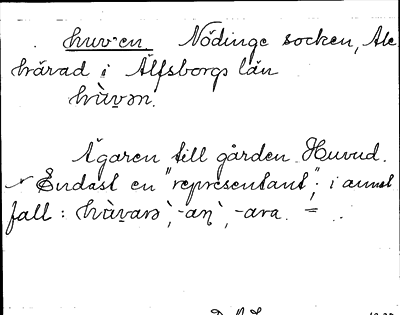 huven Nödinge socken, Ale
härad i Älfsborgs län
hùvən.
Ägaren till gården Huvud.
Endast en "representant"; i annat
fall: hùvarə, -aŋ, -ara. = ..